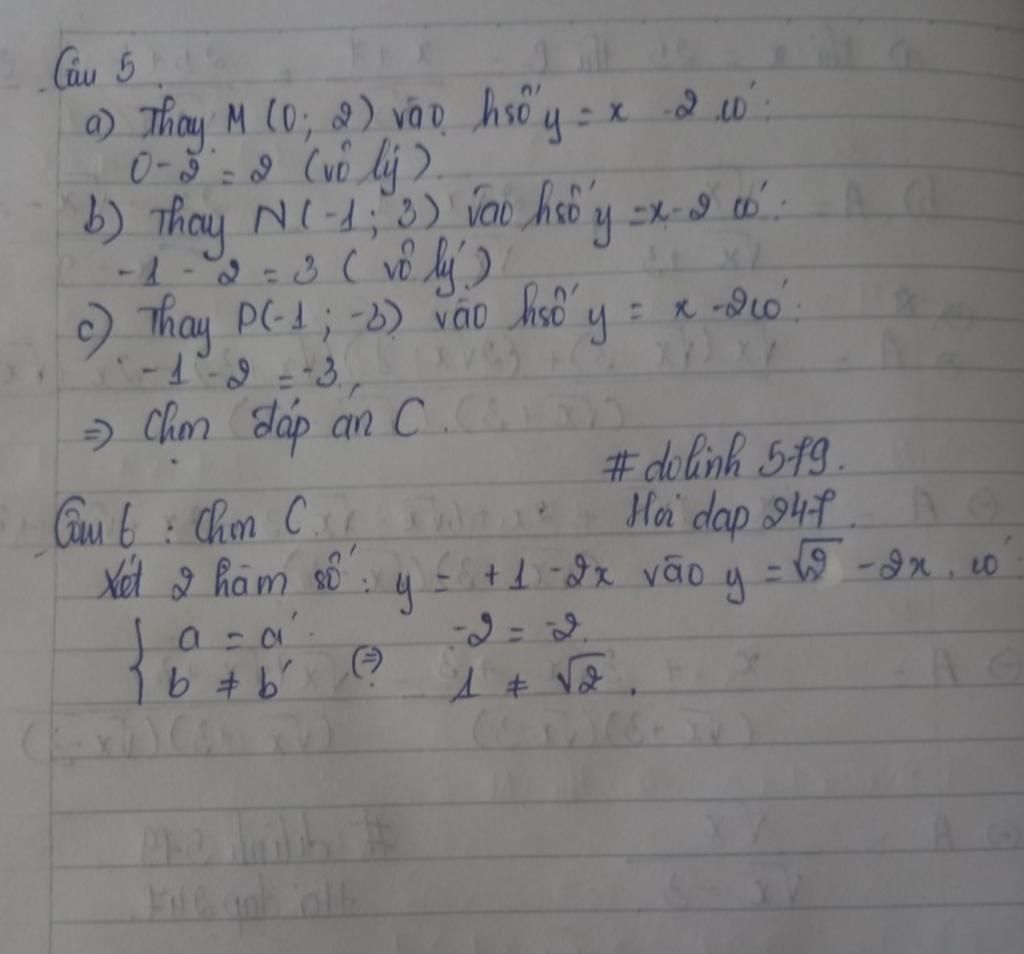 Câu 5.
a) Thay M (0; 2) vào hsố y = x - 2 có:
0 - 2 = 2 (vô lý).
b) Thay N(-1; 3) vào hsố y = x - 2 có:
-1 - 2 = 3 (vô lý)
c) Thay P(-1; -3) vào hsố y = x - 2 có:
-1 - 2 = -3,
=> Chọn đáp án C.
# dolinh 579.
Hoi dap 247.
Câu 6 : Chọn C.
Xét 2 hàm số: y = +1 - 2x vào y = √2 - 2x. có
{ a = a' -2 = -2.
b ≠ b' <=> 1 ≠ √2.